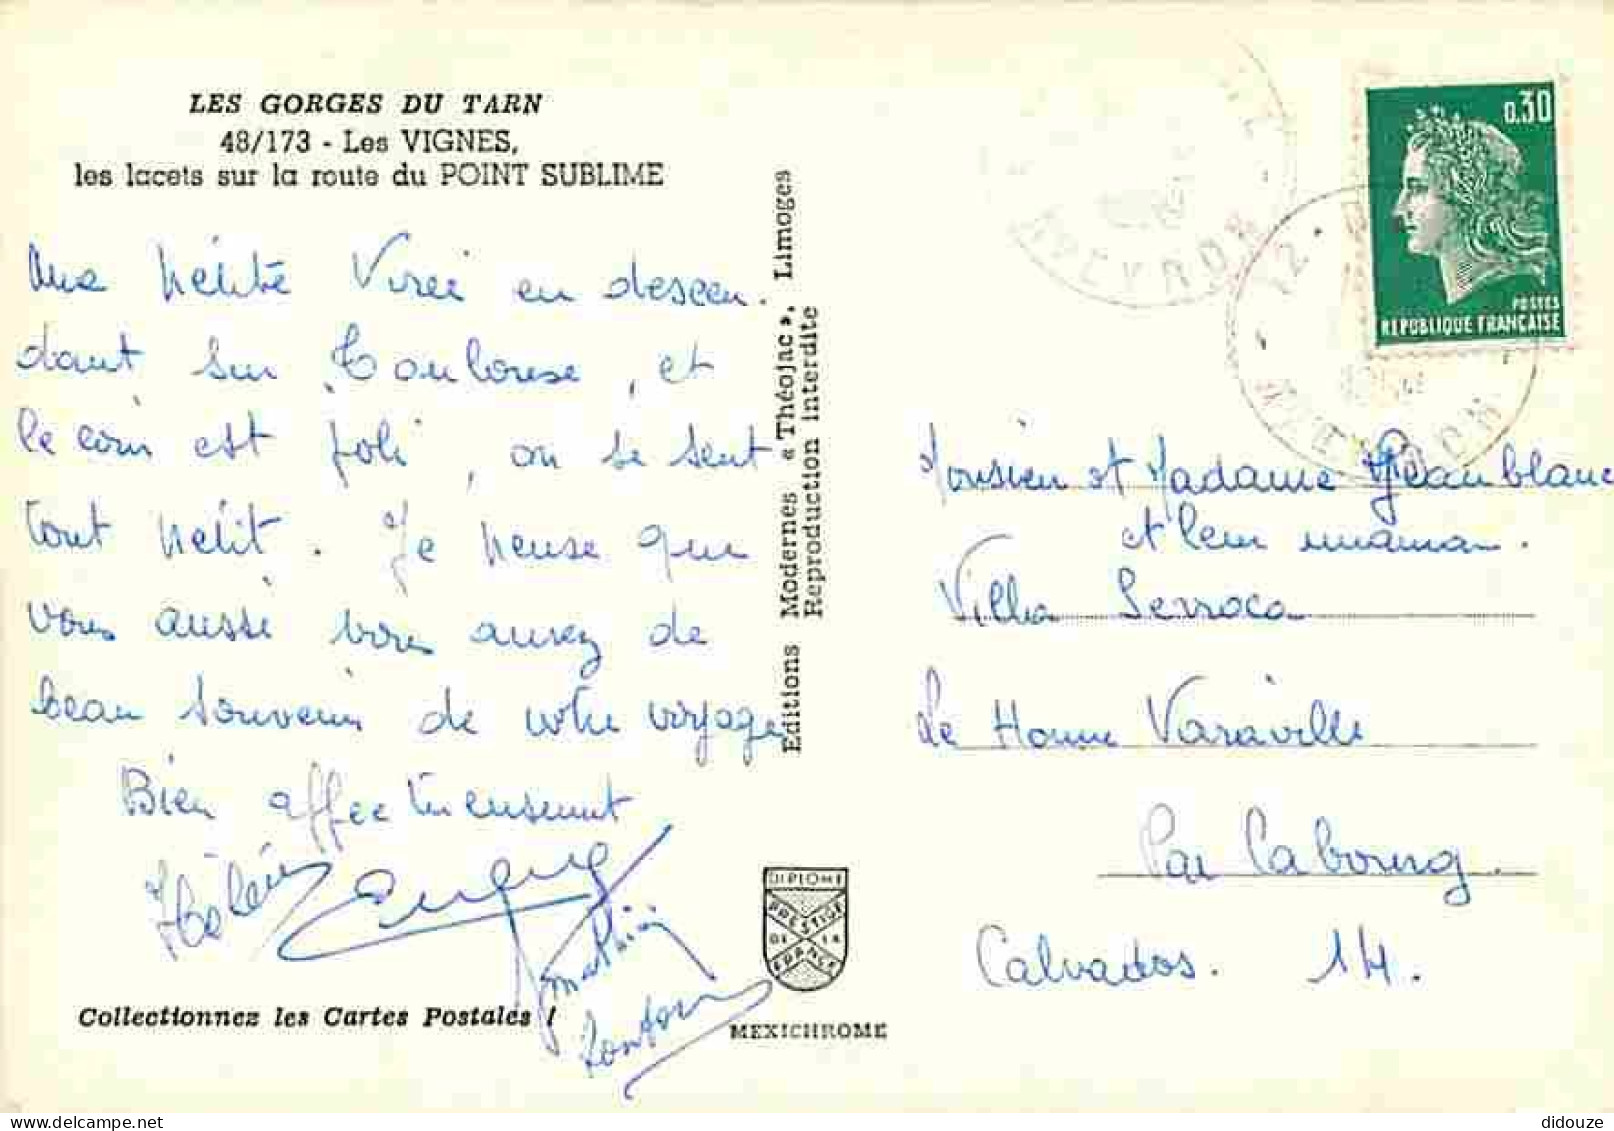 LES GORGES DU TARN
48/173 - Les VIGNES,
les lacets sur la route du POINT SUBLIME
Une petite Virée en descen-
dant sur Toulouse, et
le coin est joli, on se sent
tout petit. Je pense que
vous aussi vous aurez de
beau souvenir de votre voyage
Bien affectueusement
Hélène
Mathieu
Editions Modernes « Théojac », Limoges
Reproduction interdite
DIPLOME
PRESTIGE
DE LA
FRANCE
MEXICHROME
Collectionnez les Cartes Postales !
0.30
POSTES
REPUBLIQUE FRANÇAISE
12
AVEYRON
Monsieur et Madame Jeanblanc
et leur maman.
Villa Serroca
Le Home Varaville
Par Cabourg.
Calvados. 14.
didouze